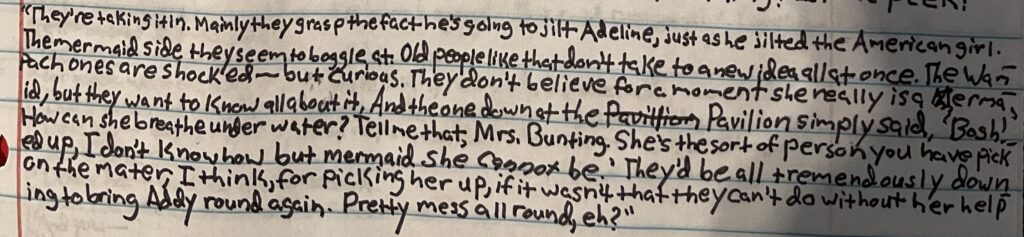 "They're taking it in. Mainly they grasp the fact he's going to jilt Adeline, just as he jilted the American girl.
The mermaid side they seem to boggle at. Old people like that don't take to a new idea all at once. The Wam
pach ones are shocked—but curious. They don't believe for a moment she really is a merma
id, but they want to know all about it. And the one down at the Pavillion Pavilion simply said, 'Bosh!
How can she breathe under water? Tell me that, Mrs. Bunting. She's the sort of person you have pick
ed up, I don't know how but mermaid she cannot be.' They'd be all tremendously down
on the mater, I think, for picking her up, if it wasn't that they can't do without her help
ing to bring Addy round again. Pretty mess all round, eh?"